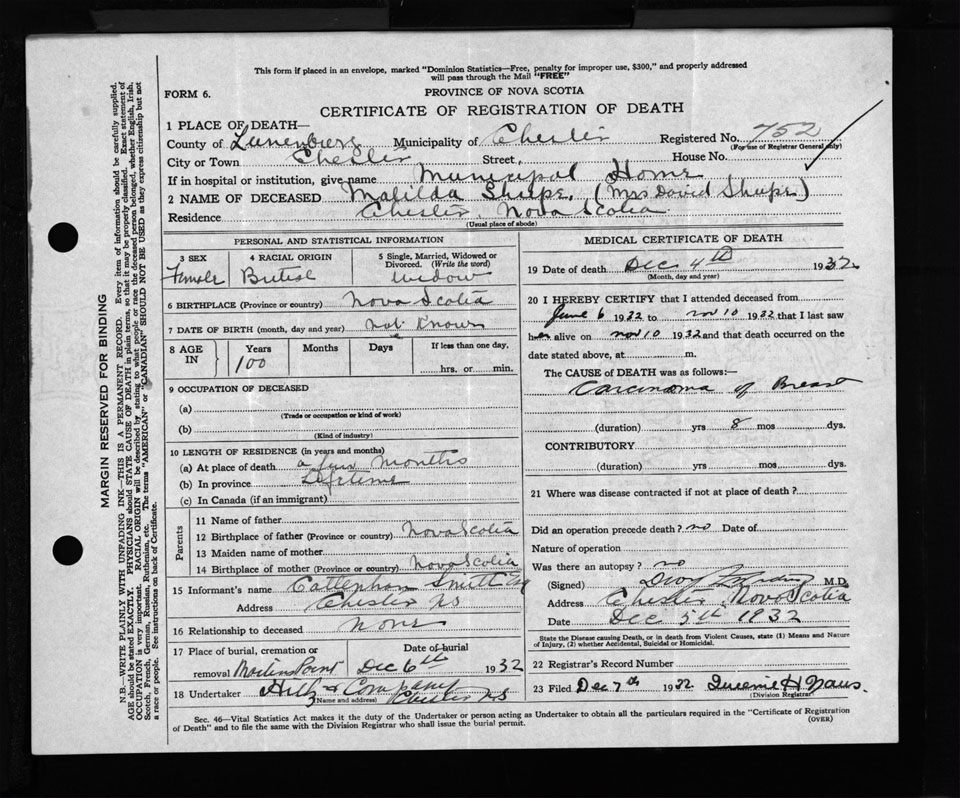 This form if placed in an envelope, marked "Dominion Statistics—Free, penalty for improper use, $300," and properly addressed
will pass through the Mail "FREE"
FORM 6.
PROVINCE OF NOVA SCOTIA
CERTIFICATE OF REGISTRATION OF DEATH
1 PLACE OF DEATH—
County of Lunenburg Municipality of Chester Registered No. 752
(For use of Registrar General only)
City or Town Chester Street, House No.
If in hospital or institution, give name Municipal Home
2 NAME OF DECEASED Matilda Shupe, (Mrs David Shupe)
Residence Chester, Nova Scotia
(Usual place of abode)
PERSONAL AND STATISTICAL INFORMATION
3 SEX 4 RACIAL ORIGIN 5 Single, Married, Widowed or
Divorced. (Write the word)
Female British Widow
6 BIRTHPLACE (Province or country) Nova Scotia
7 DATE OF BIRTH (month, day and year) Not Known
8 AGE IN Years Months Days If less than one day,
100 hrs. or min.
9 OCCUPATION OF DECEASED
(a)
(Trade or occupation or kind of work)
(b)
(Kind of industry)
10 LENGTH OF RESIDENCE (in years and months)
(a) At place of death a few months
(b) In province Lifetime
(c) In Canada (if an immigrant)
Parents
11 Name of father
12 Birthplace of father (Province or country) Nova Scotia
13 Maiden name of mother
14 Birthplace of mother (Province or country) Nova Scotia
15 Informant's name Smith
Address Chester NS
16 Relationship to deceased None
17 Place of burial, cremation or Date of burial
removal Martins Point Dec 6th 1932
18 Undertaker & Company
(Name and address) Chester NS
MEDICAL CERTIFICATE OF DEATH
19 Date of death Dec 4th 1932
(Month, day and year)
20 I HEREBY CERTIFY that I attended deceased from
June 6 1932 to Nov 10 1932 that I last saw
her alive on Nov 10 1932 and that death occurred on the
date stated above, at m.
The CAUSE of DEATH was as follows:
Carcinoma of Breast
(duration) yrs 8 mos dys.
CONTRIBUTORY
(duration) yrs mos dys.
21 Where was disease contracted if not at place of death?
Did an operation precede death? no Date of
Nature of operation
Was there an autopsy? no
(Signed) M.D.
Address Chester, Nova Scotia
Date Dec 5th 1932
State the Disease causing Death, or in death from Violent Causes, state (1) Means and Nature
of Injury, (2) whether Accidental, Suicidal or Homicidal.
22 Registrar's Record Number
23 Filed Dec 7th 1932 H
(Division Registrar)
Sec. 46—Vital Statistics Act makes it the duty of the Undertaker or person acting as Undertaker to obtain all the particulars required in the "Certificate of Registration
of Death" and to file the same with the Division Registrar who shall issue the burial permit.
(OVER)
MARGIN RESERVED FOR BINDING
N.B.—WRITE PLAINLY WITH UNFADING INK—THIS IS A PERMANENT RECORD. Every item of information should be carefully supplied.
AGE should be stated EXACTLY. PHYSICIANS should STATE CAUSE OF DEATH in plain terms, so that it may be properly classified. Exact statement of
OCCUPATION is very important. RACIAL ORIGIN will be described by stating to what people or race the deceased person belonged, whether English, Irish,
Scotch, French, German, Russian, Ruthenian, etc. The terms "AMERICAN" or "CANADIAN" SHOULD NOT BE USED as they express citizenship but not
a race or people. See instructions on back of Certificate.